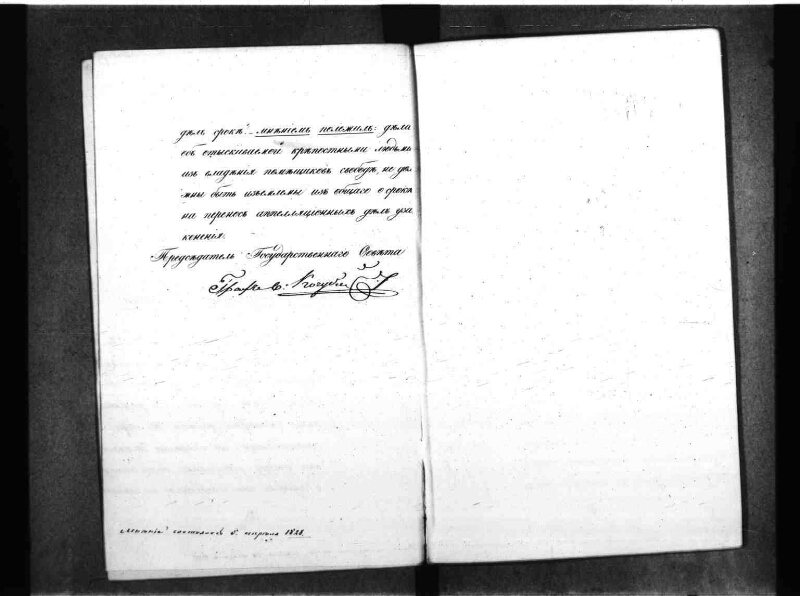 дѣлъ срокѣ. - мнѣніемъ положилъ: дѣла
объ отыскиваемой крѣпостными людьми
изъ владѣнія помѣщиковъ свободѣ, не дол
жны быть изъемлемы изъ общаго о срокѣ
на переносъ аппелляціонныхъ дѣлъ уза
коненія.
Предсѣдатель Государственнаго Совѣта
Графъ В: Кочубей
Мнѣніе состоялось апрѣля 1828.